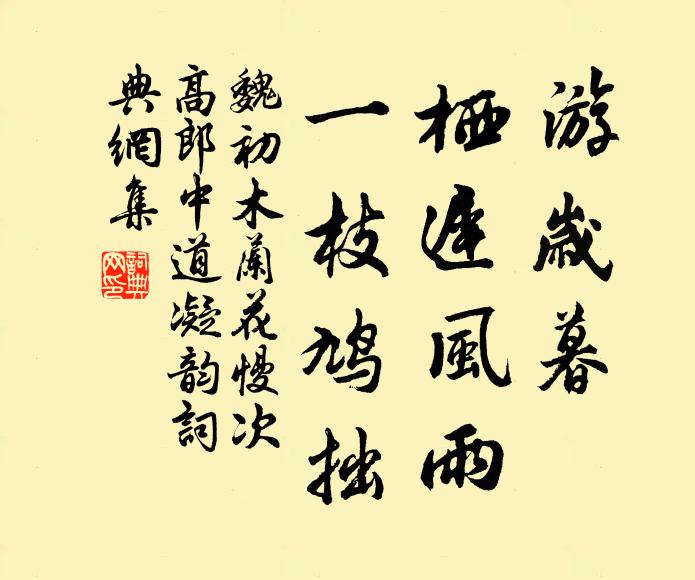 游歲暮
栖遲風雨
一枝鳩拙
魏初木蘭花慢次
高郎中道凝韵詞
典網集
詞典網印